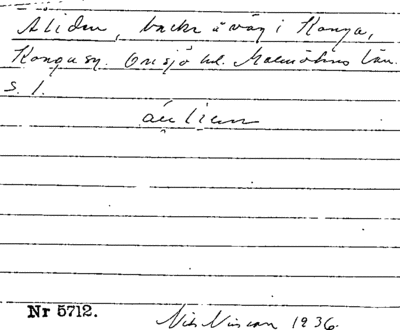 Åliden, backe å väg i Konga,
Konga sn. Onsjö hd. Malmöhus län.
s. 1.
Nr 5712.
Nils Nilsson 1936.